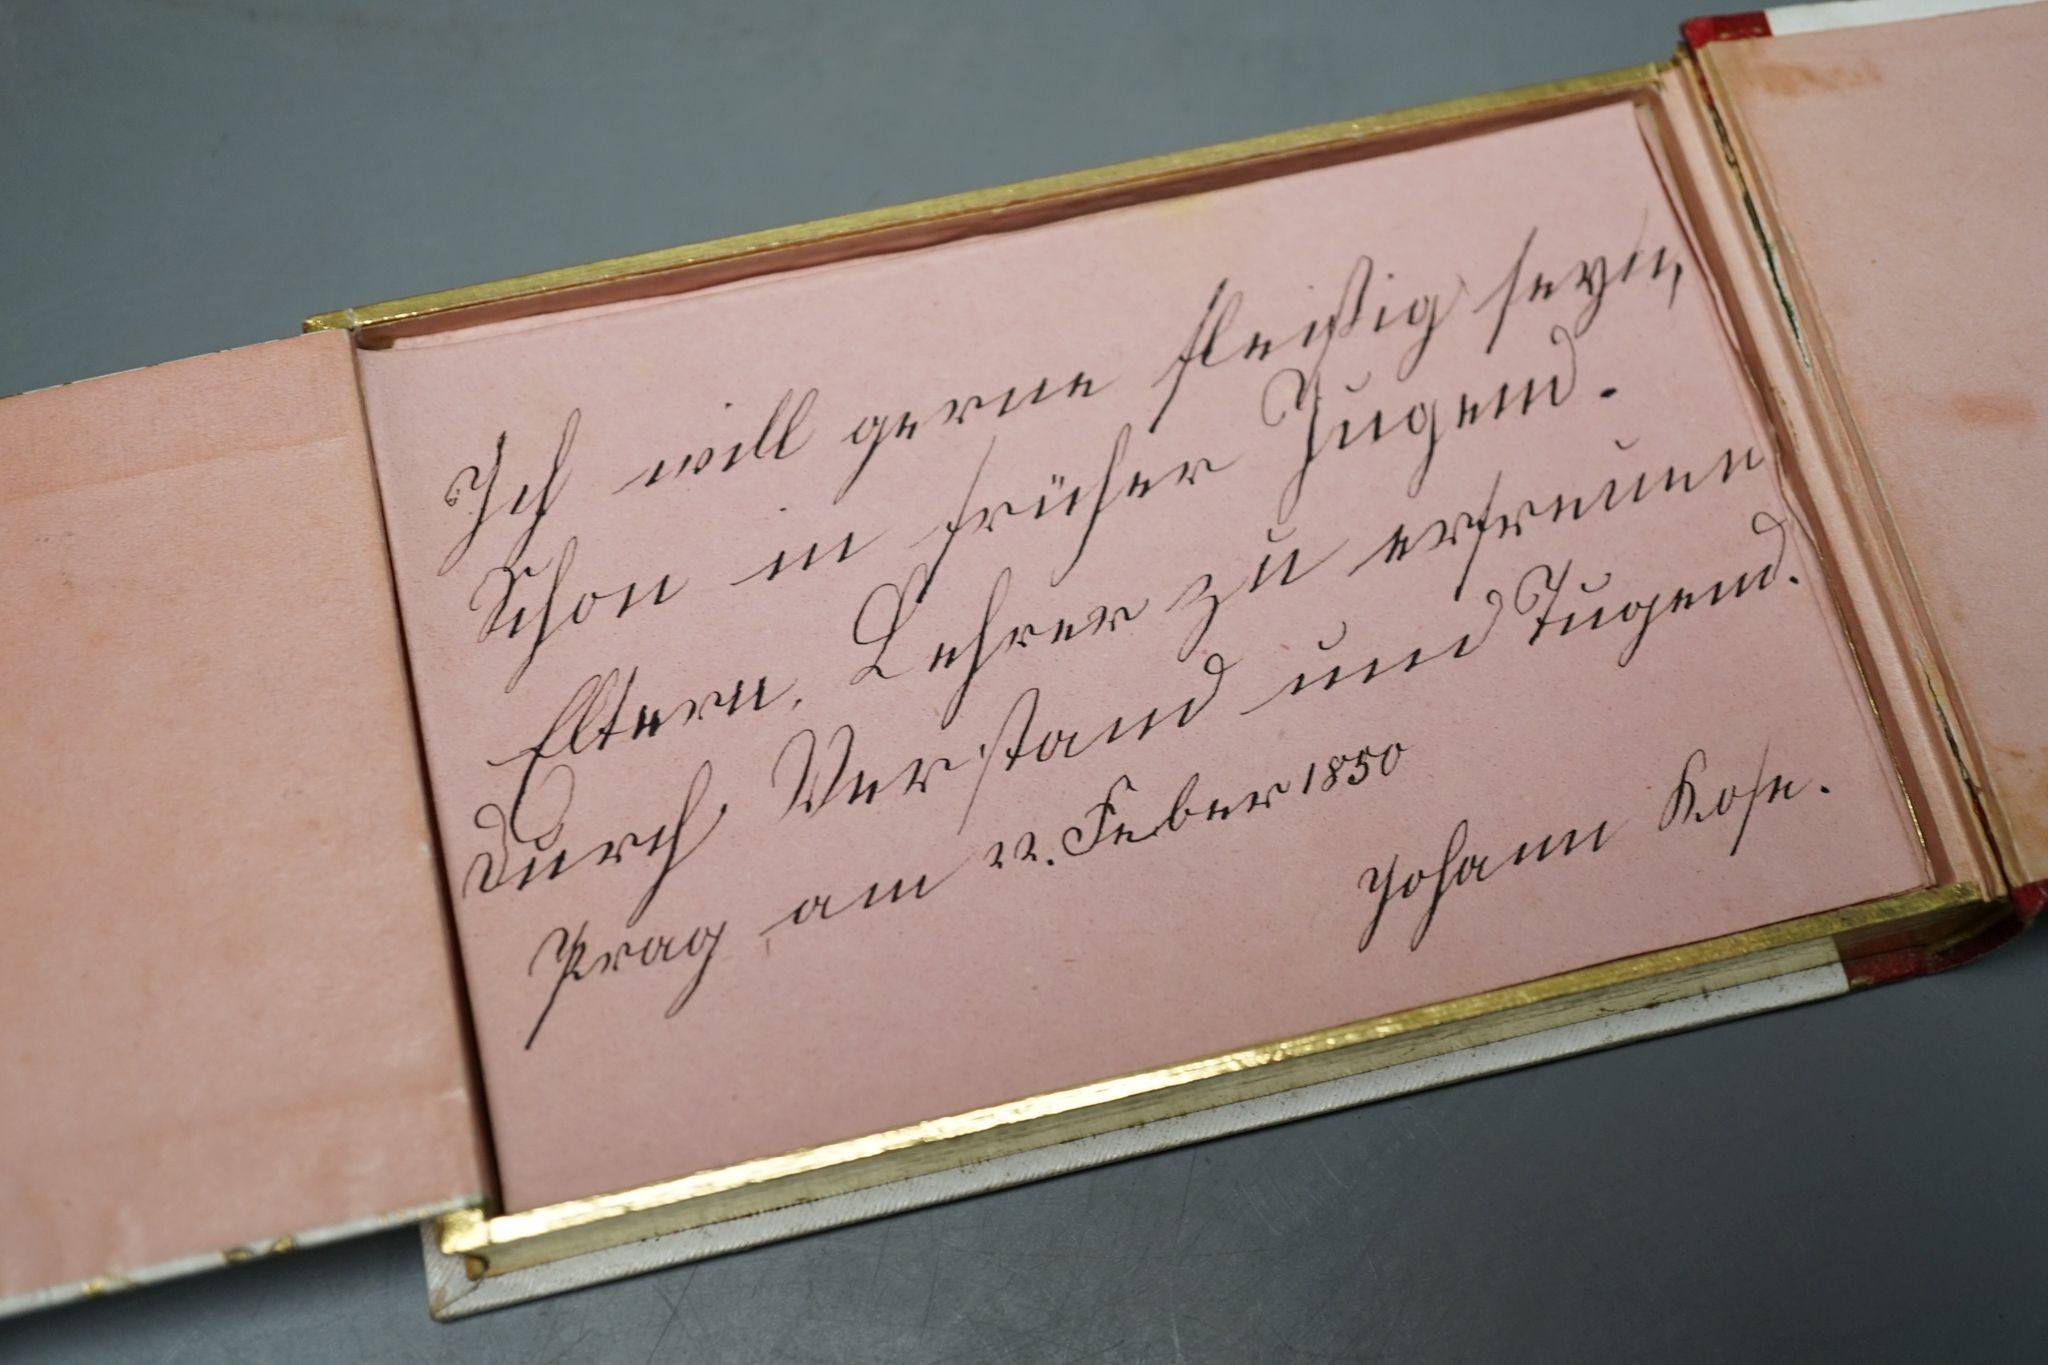 Ich will gerne fleißig seyn,
Schon in früher Jugend.
Eltern, Lehrer zu erfreuen
Durch Verstand und Tugend.
Prag am 22. Feber 1850
Johann Kose.